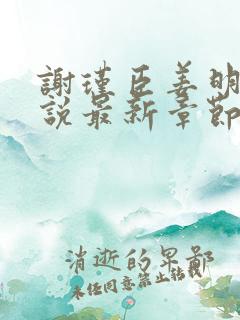 謝瑾臣姜明
說最新章節
消逝的畀鄙
未经同意禁止转载